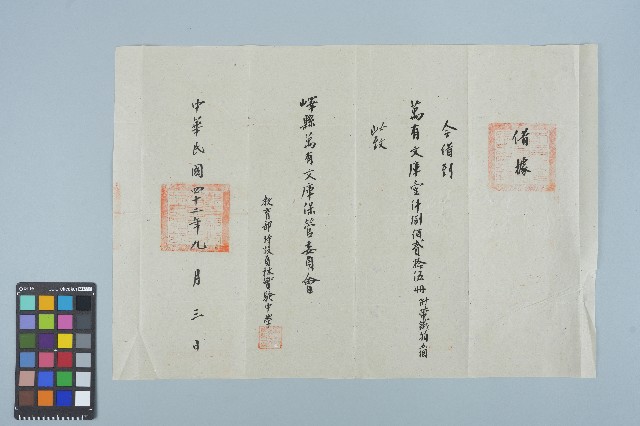 借據
今借到
萬有文庫壹仟捌佰貳拾伍冊附箱
此致
嶧縣萬有文庫保管委員會
教育部特設員林實驗中學
中華民國四十二年九月三日